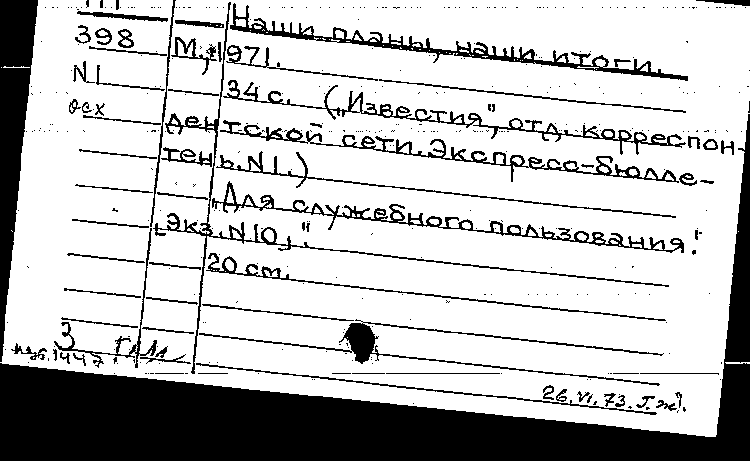 Наши планы, наши итоги.
398 М., 1971.
N1 34 с. („Известия", отд. корреспон-
дентской сети. Экспресс-бюлле-
тень. N1.)
„Для служебного пользования!
Экз. N10„".
20 см.
3
26.VI.73.